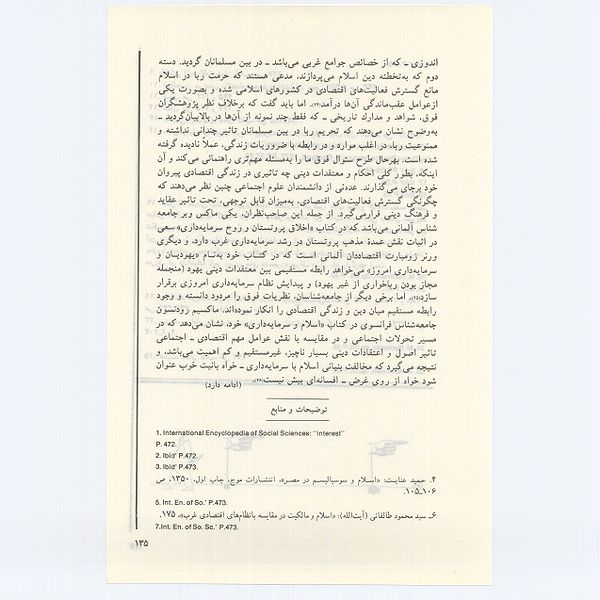 اندوزی ـ که از خصائص جوامع غربی می‌باشد ـ در بین مسلمانان گردید. دسته
دوم که به‌تخطئه دین اسلام می‌پردازند، مدعی هستند که حرمت ربا در اسلام
مانع گسترش فعالیت‌های اقتصادی در کشورهای اسلامی شده و بصورت یکی
ازعوامل عقب‌ماندگی آن‌ها درآمده(۲۴). اما باید گفت که برخلاف نظر پژوهشگران
فوق، شواهد و مدارك تاریخی ـ که فقط چند نمونه از آن‌ها در بالابیان‌گردید ـ
به‌وضوح نشان می‌دهند که تحریم ربا در بین مسلمانان تاثیر چندانی نداشته و
ممنوعیت ربا، در اغلب موارد و در رابطه با ضروریات زندگی، عملا نادیده گرفته
شده است. بهرحال طرح سئوال فوق ما را به‌مسئله مهم‌تری راهنمائی می‌کند و آن
اینکه، بطور کلی احکام و معتقدات دینی چه تاثیری در زندگی اقتصادی پیروان
خود برجای می‌گذارند. عده‌ئی از دانشمندان علوم اجتماعی چنین نظر می‌دهند که
چگونگی گسترش فعالیت‌های اقتصادی، به‌میزان قابل توجهی، تحت تاثیر عقاید
و فرهنگ دینی قرارمی‌گیرد. از جمله این صاحب‌نظران، یکی ماکس وبر جامعه
شناس آلمانی می‌باشد که در کتاب «اخلاق پروتستان و روح سرمایه‌داری» سعی
در اثبات نقش عمدهٔ مذهب پروتستان در رشد سرمایه‌داری غرب دارد، و دیگری
ورنر زومبارت اقتصاددان آلمانی است که در کتاب خود به‌نام «یهودیان و
سرمایه‌داری امروز» می‌خواهد رابطه مستقیمی بین معتقدات دینی یهود (منجمله
مجاز بودن رباخواری از غیر یهود) و پیدایش نظام سرمایه‌داری امروزی برقرار
سازد(۲۵). اما برخی دیگر از جامعه‌شناسان، نظریات فوق را مردود دانسته و وجود
رابطه مستقیم میان دین و زندگی اقتصادی را انکار نموده‌اند. ماکسیم رودنسون
جامعه‌شناس فرانسوی در کتاب «اسلام و سرمایه‌داری» خود، نشان می‌دهد که در
مسیر تحولات اجتماعی و در مقایسه با نقش عوامل مهم اقتصادی ـ اجتماعی
تاثیر اصول و اعتقادات دینی بسیار ناچیز، غیرمستقیم و کم اهمیت می‌باشد، و
نتیجه می‌گیرد که مخالفت بنیانی اسلام با سرمایه‌داری ـ خواه بانیت خوب عنوان
شود خواه از روی غرض ـ افسانه‌ای بیش نیست(۲۶).
(ادامه دارد)
توضیحات و منابع
1. International Encyclopedia of Social Sciences: "Interest"
P. 472.
2. Ibid' P.472.
3. Ibid' P.473.
۴ـ حمید عنایت: «اسلام و سوسیالیسم در مصر»، انتشارات موج، چاپ اول، ۱۳۵۰، ص
۱۰۵ـ۱۰۶.
5. Int. En. of So.' P.473.
۶ـ سید محمود طالقانی (آیت‌الله): «اسلام و مالکیت در مقایسه بانظام‌های اقتصادی غرب»، ۱۷۵.
7.Int. En. of So. Sc.' P.473.
۱۳۵